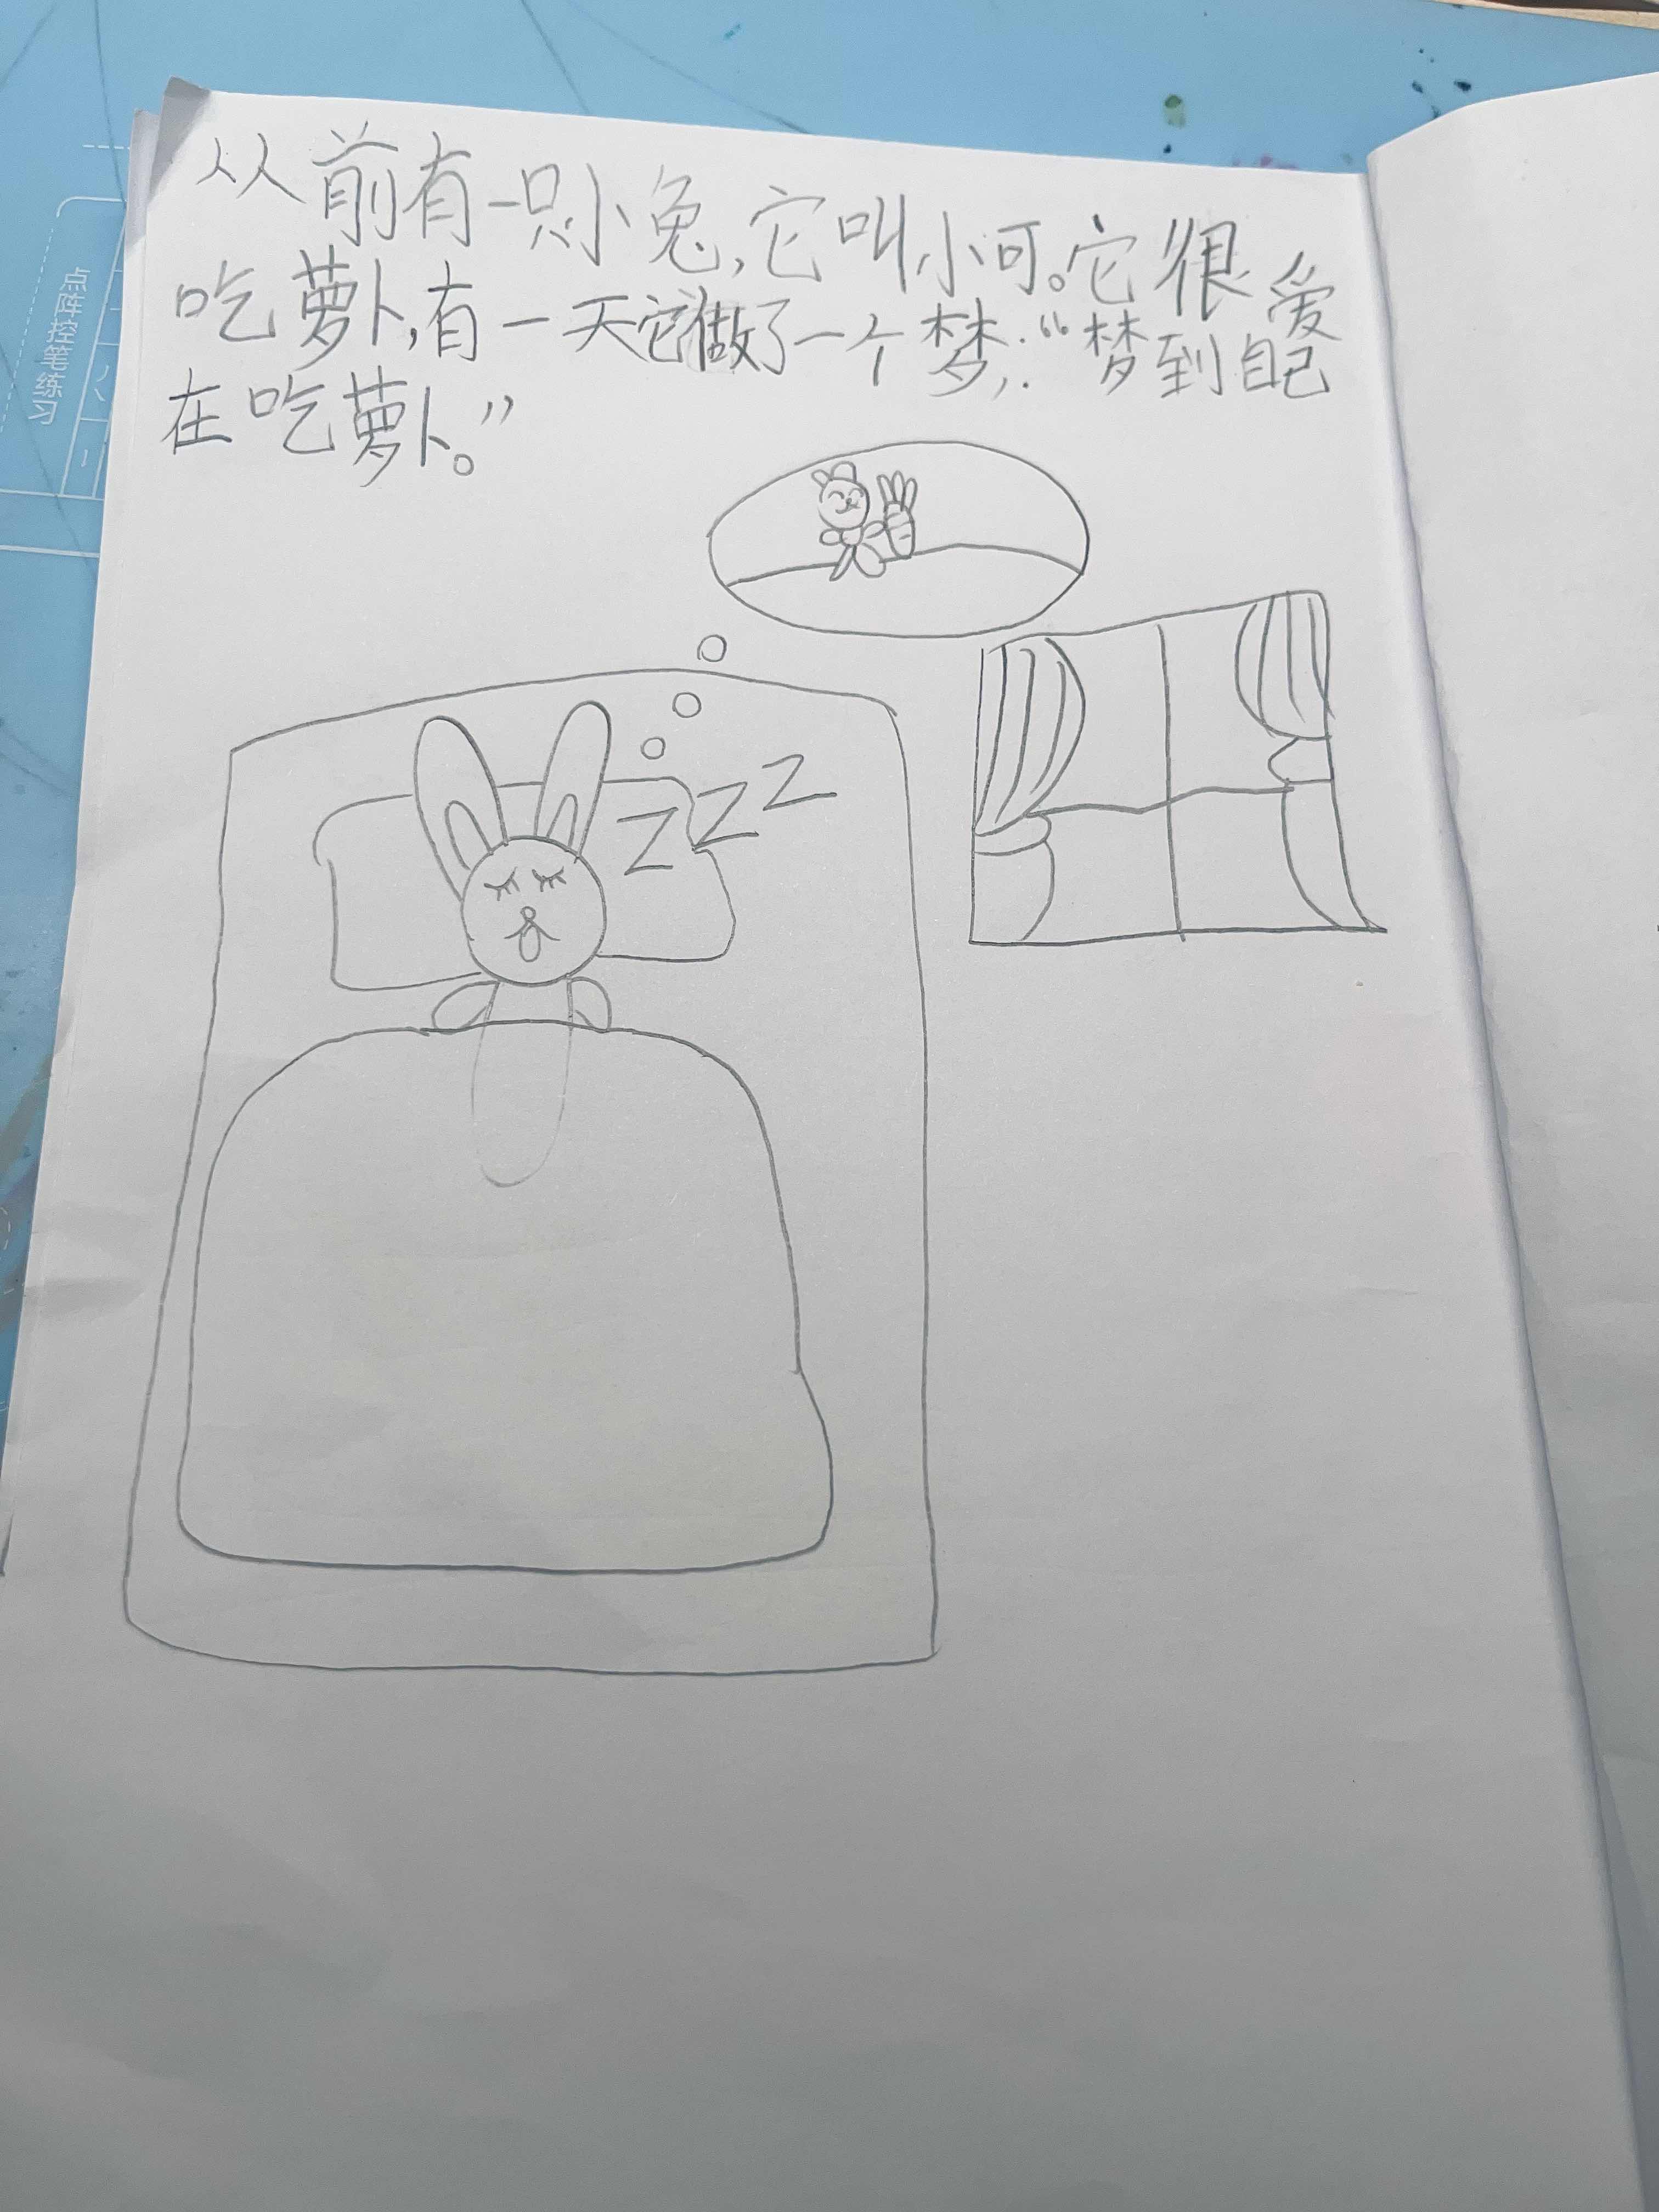 从前有一只小兔,它叫小可。它很爱
吃萝卜,有一天它做了一个梦,:“梦到自己
在吃萝卜。”
zzz
点阵控笔练习